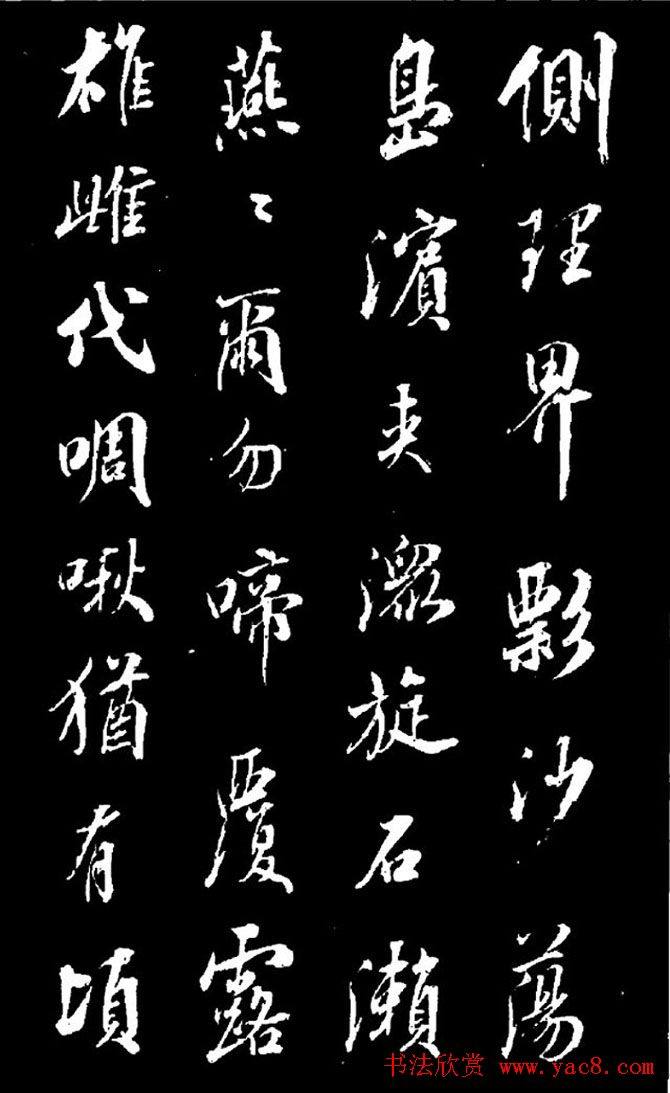 側理界影沙蕩
島濱夾潊旋石瀨
燕〻爾勿啼覆露
雄雌代啁啾猶有頃
书法欣赏 www.yac8.com